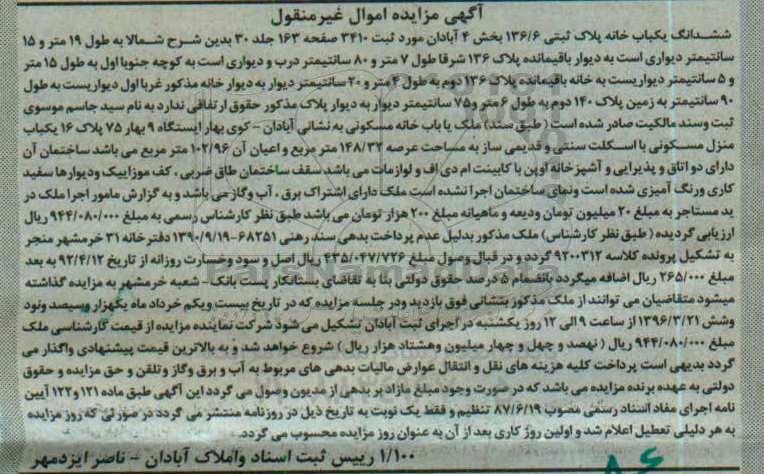 آگهی مزایده اموال غیرمنقول
ششدانگ یکباب خانه پلاک ثبتی ۱۳۶/۶ بخش ۴ آبادان مورد ثبت ۳۴۱۰ صفحه ۱۶۳ جلد ۳۰ بدین شرح شمالا به طول ۱۹ متر و ۱۵
سانتیمتر دیواری است به دیوار باقیمانده پلاک ۱۳۶ شرقا طول ۷ متر و ۸۰ سانتیمتر درب و دیواری است به کوچه جنوبا اول به طول ۱۵ متر
و ۵ سانتیمتر دیواریست به خانه باقیمانده پلاک ۱۳۶ دوم به طول ۴ متر و ۲۰ سانتیمتر دیوار به دیوار خانه مذکور غربا اول دیواریست به طول
۹۰ سانتیمتر به زمین پلاک ۱۴۰ دوم به طول ۶ متر و ۷۵ سانتیمتر دیوار به دیوار پلاک مذکور حقوق ارتفاقی ندارد به نام سید جاسم موسوی
ثبت وسند مالکیت صادر شده است ( طبق سند) ملک یا باب خانه مسکونی به نشانی آبادان – کوی بهار ایستگاه ۹ بهار ۷۵ پلاک ۱۶ یکباب
منزل مسکونی با اسکلت سنتی و قدیمی ساز به مساحت عرصه ۱۴۸/۳۲ متر مربع و اعیان آن ۱۰۲/۹۶ متر مربع می باشد ساختمان آن
دارای دو اتاق و پذیرایی و آشپزخانه اوپن با کابینت ام دی اف و لوازمات می باشد سقف ساختمان طاق ضربی ، کف موزاییک ودیوارها سفید
کاری ورنگ آمیزی شده است ونمای ساختمان اجرا نشده است ملک دارای اشتراک برق ، آب وگاز می باشد و به گزارش مامور اجرا ملک در
ید مستاجر به مبلغ ۲۰ میلیون تومان ودیعه و ماهیانه مبلغ ۲۰۰ هزار تومان می باشد طبق نظر کارشناس رسمی به مبلغ ۹۴۴/۰۸۰/۰۰۰ ریال
ارزیابی گردیده ( طبق نظر کارشناس) ملک مذکور بدلیل عدم پرداخت بدهی سند رهنی ۶۸۲۵۱–۱۳۹۰/۹/۱۹ دفترخانه ۳۱ خرمشهر منجر
به تشکیل پرونده کلاسه ۹۲۰۰۳۱۲ گردد و در قبال وصول مبلغ ۴۳۵/۰۴۷/۷۲۶ ریال اصل و سود وخسارت روزانه از تاریخ ۹۲/۴/۱۲ به بعد
مبلغ ۲۶۵/۰۰۰ ریال اضافه میگردد بانضمام ۵ درصد حقوق دولتی بنا به تقاضای بستانکار پست بانک– شعبه خرمشهر به مزایده گذاشته
میشود متقاضیان می توانند از ملک مذکور بنشانی فوق بازدید ودر جلسه مزایده که در تاریخ بیست ویکم خرداد ماه یکهزار وسیصد ونود
وشش ۱۳۹۶/۳/۲۱ از ساعت ۹ الی ۱۲ روز یکشنبه در اجرای ثبت آبادان تشکیل می شود شرکت نماینده مزایده از قیمت کارشناسی ملک
مبلغ ۹۴۴/۰۸۰/۰۰۰ ریال ( نهصد و چهل و چهار میلیون وهشتاد هزار ریال ) شروع خواهد شد و به بالاترین قیمت پیشنهادی واگذار می
گردد بدیهی است پرداخت کلیه هزینه های نقل و انتقال عوارض مالیات بدهی های مربوط به آب و برق وگاز وتلفن و حق مزایده و حقوق
دولتی به عهده برنده مزایده می باشد که در صورت وجود مبلغ مازاد بر بدهی از مدیون وصول می گردد این آگهی طبق ماده ۱۲۱ و ۱۲۲ آیین
نامه اجرای مفاد اسناد رسمی مصوب ۸۷/۶/۱۹ تنظیم و فقط یک نوبت به تاریخ ذیل در روزنامه منتشر می گردد در صورتی که روز مزایده
به هر دلیلی تعطیل اعلام شد و اولین روز کاری بعد از آن به عنوان روز مزایده محسوب می گردد.
۱/۱۰۰ رییس ثبت اسناد واملاک آبادان – ناصر ایزدمهر
ParsNamadData